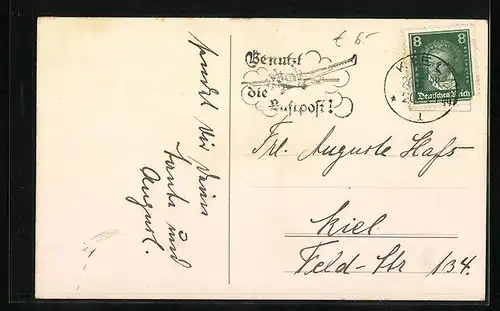 £ 5.-
Benutzt
die Luftpost!
8 8
Deutsches Reich
KIEL
1
Frl. Auguste Hass
Kiel
Feld-Str 134.
Dir Deine
Tante und
August.